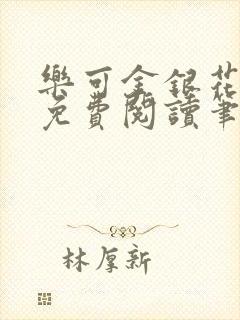 樂可金銀花
免費閱讀筆
林厚新